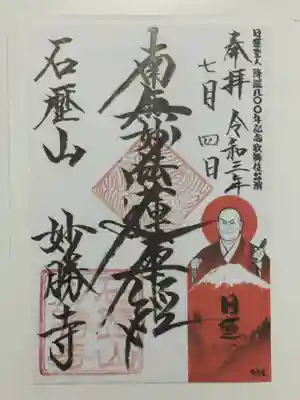 日蓮聖人 降誕八〇〇年記念歌舞伎公演
奉拝 令和三年
七月 四日
南無妙法蓮華経
石歴山 妙勝寺
日蓮